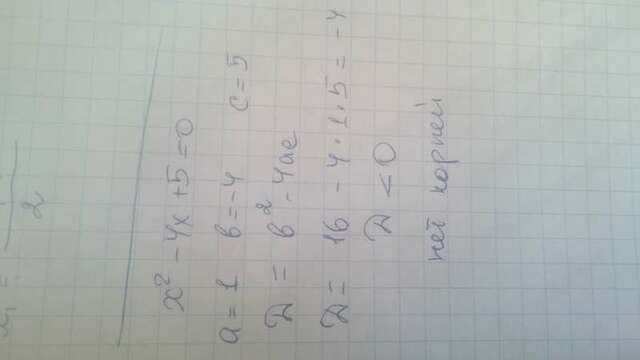 x₁ = —
2
x² - 4x + 5 = 0
a = 1 в = -4 c = 5
D = в² - 4ac
D = 16 - 4 · 1 · 5 = -4
D < 0
нет корней